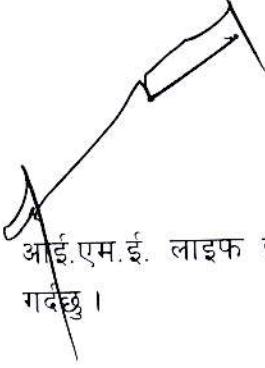 आई.एम.ई. लाइफ
गर्दछु ।